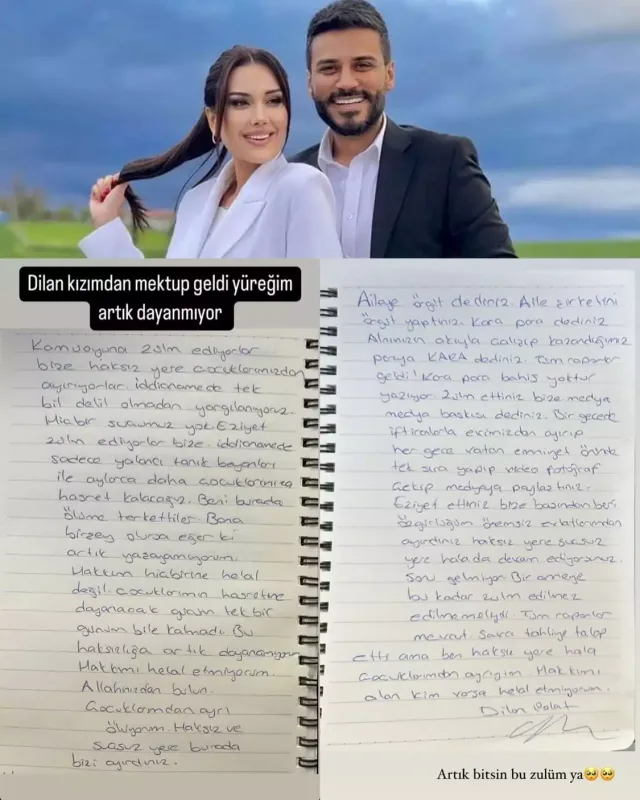 Dilan kızımdan mektup geldi yüreğim
artık dayanmıyor
Kamuoyuna zulm ediyorlar
bize haksız yere çocuklarımızdan
ayırıyorlar. iddianamede tek
bil delil olmadan yargılanıyoruz.
Hiçbir suçumuz yok. Eziyet
zulm ediyorlar bize. iddianamede
sadece yalancı tanık beyanları
ile aylarca daha çocuklarımıza
hasret kalacağız. Beni burada
ölüme terkettiler. Bana
birzey olursa eğer ki
artık yazayamıyorum.
Hakkım hiçbirine helal
değil. Çocuklarımın hasretine
dayanacak gücüm tek bir
günüm bile kalmadı. Bu
haksızlığa artık dayanamıyorum
Hakkımı helal etmiyorum.
Allahınızdan bulun.
Çocuklarımdan ayrı
ölüyorum. Haksız ve
suçsuz yere burada
bizi ayırdınız.
Aileye örgüt dediniz. Aile şirketini
örgüt yaptınız. Kara para dediniz
Alnımızın akıyla çalışıp kazandığımız
paraya KARA dediniz. Tüm raporlar
geldi! Kara para bahis yoktur
yazıyor. Zulm ettiniz bize medya
medya baskısı dediniz. Bir gecede
iftiralarla evimizden ayırıp
her gece vatan emniyet önünde
tek sıra yapıp video fotoğraf
çekip medyaya paylaştınız.
Eziyet ettiniz bize başından beri
özgürlüğüm önemsiz evlatlarımdan
ayırdınız haksız yere suçsuz
yere hala da devam ediyorsunuz.
sonu gelmiyor. Bir anneye
bu kadar zulm edilmez
edilmemeliydi. Tüm raporlar
mevcut. Savcı tahliye talep
etti ama ben haksız yere hala
çocuklarımdan ayrıyım. Hakkımı
alan kim varsa helal etmiyorum.
Dilan Polat
Artık bitsin bu zulüm ya🥺🥺